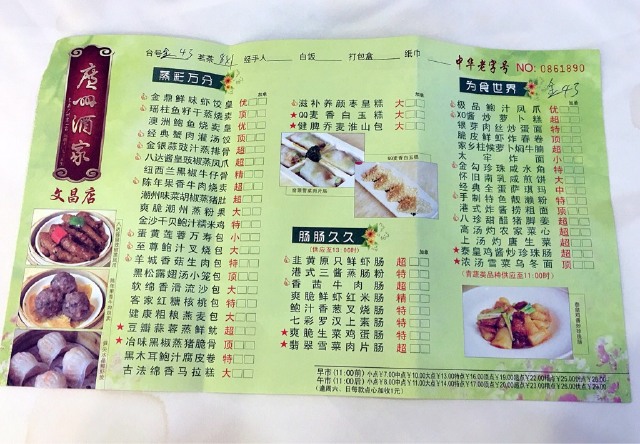 广州酒家
文昌店
台号 金43 茗茶 881 经手人 白饭 打包盒 纸巾
中华老字号 NO: 0861890
蒸彩万分
金鼎鲜味虾饺皇 优
瑶柱鱼籽干蒸烧卖 顶
澳洲鲍鱼烧卖皇 优
经典蟹肉灌汤饺 顶
金银蒜豉汁蒸排骨 超
八达酱皇豉椒蒸凤爪 超
纽西兰黑椒牛仔骨 精
陈年果香牛肉烧卖 超
潮州味菜胡椒蒸猪肚 超
爽脆潮州蒸粉果 大
金沙干贝鲍汁糯米鸡 特
蛋黄莲蓉万寿包 小
至尊鲍汁叉烧包 大
羊城香菇生肉包 特
黑松露翅汤小笼包 顶
软绵香滑流沙包 大
客家红糖核桃包 特
健康粗粮燕麦包 大
★豆瓣蒜蓉蒸鲜鱿 超
★冶味黑椒蒸猪脆骨 顶
黑木耳鲍汁腐皮卷 特
古法绵香马拉糕 大
滋补养颜枣皇糕 大
★QQ麦香白玉糕 大
★健脾乔麦淮山包 大
肠肠久久
(供应至13:00时)
韭黄原只鲜虾肠 超
港式三酱蒸肠粉 特
香茜牛肉肠 超
爽脆鲜虾红米肠 精
鲍汁香葱叉烧肠 特
七彩罗汉上素肠 特
★爽脆生菜鸡蛋肠 特
★翡翠雪菜肉片肠 超
为食世界 金43
极品鲍汁凤爪 优
XO酱炒萝卜糕 超
银芽肉丝炒面 特
脆皮鲜虾炸春卷 顶
家乡柱候萝卜焖牛腩 超
太牢炸面 小
金勾珍珠咸水角 特
怀旧南乳咸煎饼 大
经典全蛋萨琪玛 中
手撕老酱捞粗面 特
港式炸酱捞粗面 顶
八珍甜醋猪脚姜 超
高汤灼农家菜心 超
上汤灼唐生菜 超
★泰皇鸡酱炒珍珠肠 超
★浓汤雪菜乌冬面 顶
(香蔬美品档供应至11:00时)
早市(11:00前) 小点￥7.00中点￥10.00大点￥13.00特点￥16.00顶点￥19.00超点￥22.00精点￥25.00优点￥28.00